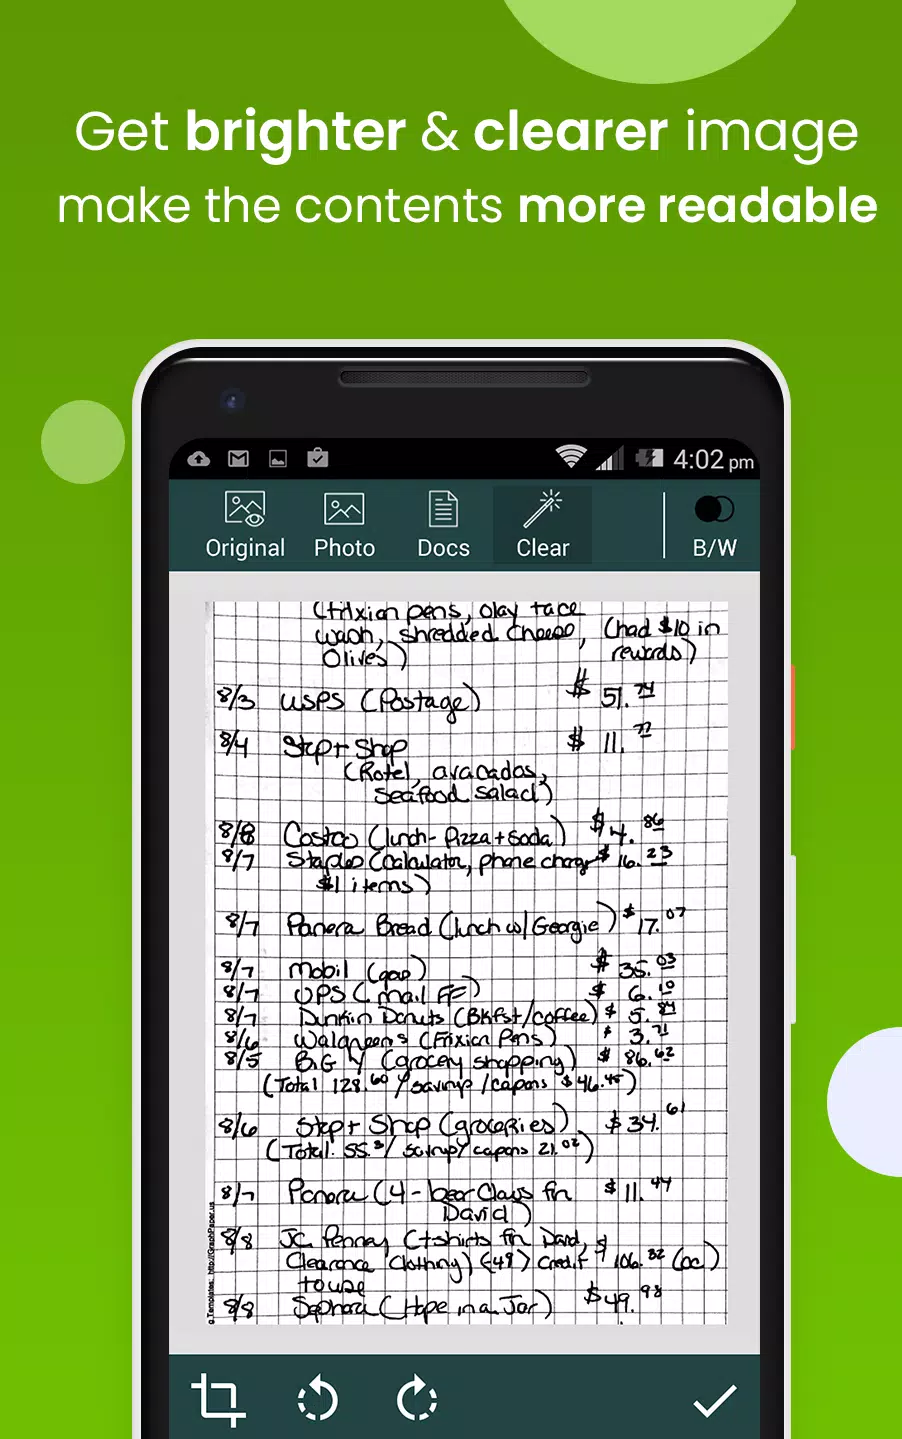 Get brighter & clearer image
make the contents more readable
4:02 pm
Original Photo Docs Clear B/W
(frixion pens, olay face
wash, shredded cheese, (had $10 in
Olives) rewards)
8/3 USPS (Postage) $ 51.74
8/4 Stop + Shop $ 11.77
(Rotel, avacados,
seafood salad)
8/8 Costco (lunch - Pizza + Soda) $ 4.86
8/7 Staples (calculator, phone charger $ 16.23
$1 items)
8/7 Panera Bread (lunch w/ Georgie) $ 17.07
8/7 Mobil (gas) $ 35.03
8/7 UPS (mail FF) $ 6.10
8/7 Dunkin Donuts (Bkfst/coffee) $ 5.84
8/6 Walgreens (Frixion Pens) $ 3.71
8/5 BiG Y (grocery shopping) $ 86.62
(Total 128.60 / savings /coupons $46.45)
8/6 Stop + Shop (groceries) $ 34.61
(Total: 55. / savings/ coupons 21.02)
8/7 Panera (4 - bear Claws for $ 11.44
David)
8/8 JC Penney (t-shirts for David, $
Clearance Clothing) (-49) Credit 106.32 (cc)
to use
8/8 Sephora (Hope in a Jar) $49.98
Templates: http://GraphPaper.us